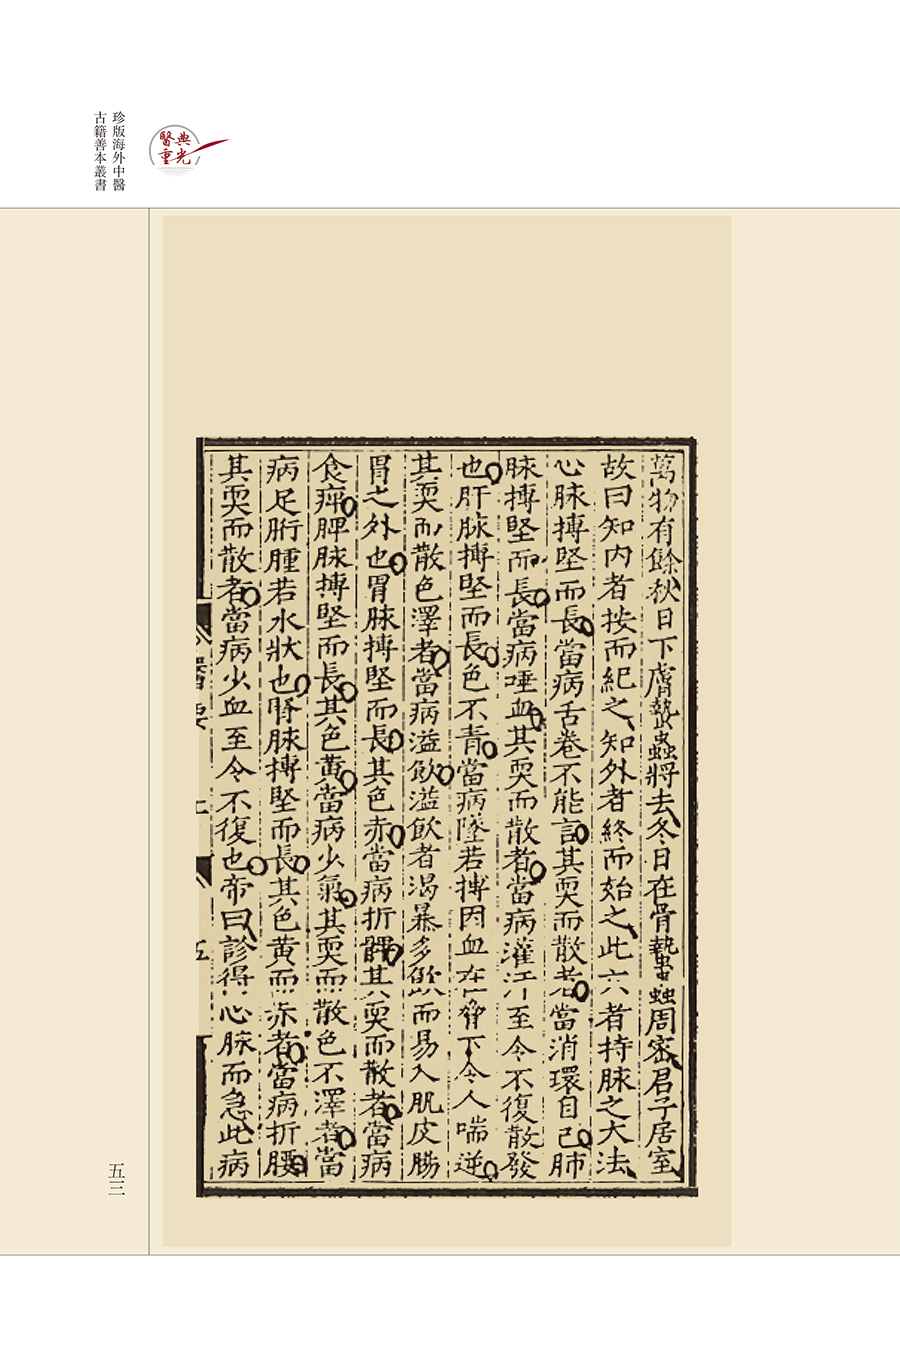 珍版海外中醫
古籍善本叢書
醫典
重光
萬物有餘秋日下膚蟄蟲將去冬日在骨蟄蟲周密君子居室
故曰知内者按而紀之知外者終而始之此六者持脉之大法
心脉搏堅而長當病舌卷不能言其耎而散者當消環自己肺
脉搏堅而長當病唾血其耎而散者當病灌汗至今不復散發
也肝脉搏堅而長色不青當病墜若搏因血在脅下令人喘逆
其耎而散色澤者當病溢飲溢飲者渴暴多飲而易入肌皮腸
胃之外也胃脉搏堅而長其色赤當病折髀其耎而散者當病
食痺脾脉搏堅而長其色黃當病少氣其耎而散色不澤者當
病足胻腫若水狀也腎脉搏堅而長其色黃而赤者當病折腰
其耎而散者當病少血至今不復也帝曰診得心脉而急此病
上
五
五三